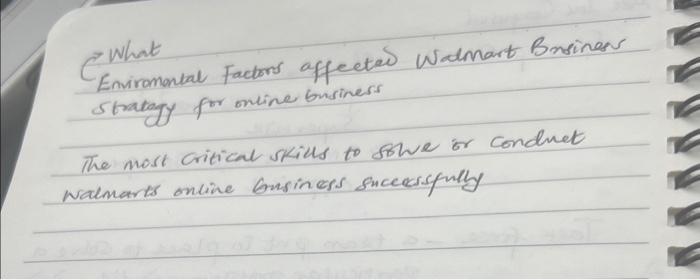 What
Enviromental Factors affected Walmart Business
strategy for online business
The most critical skills to solve or conduct
Walmarts online business successfully